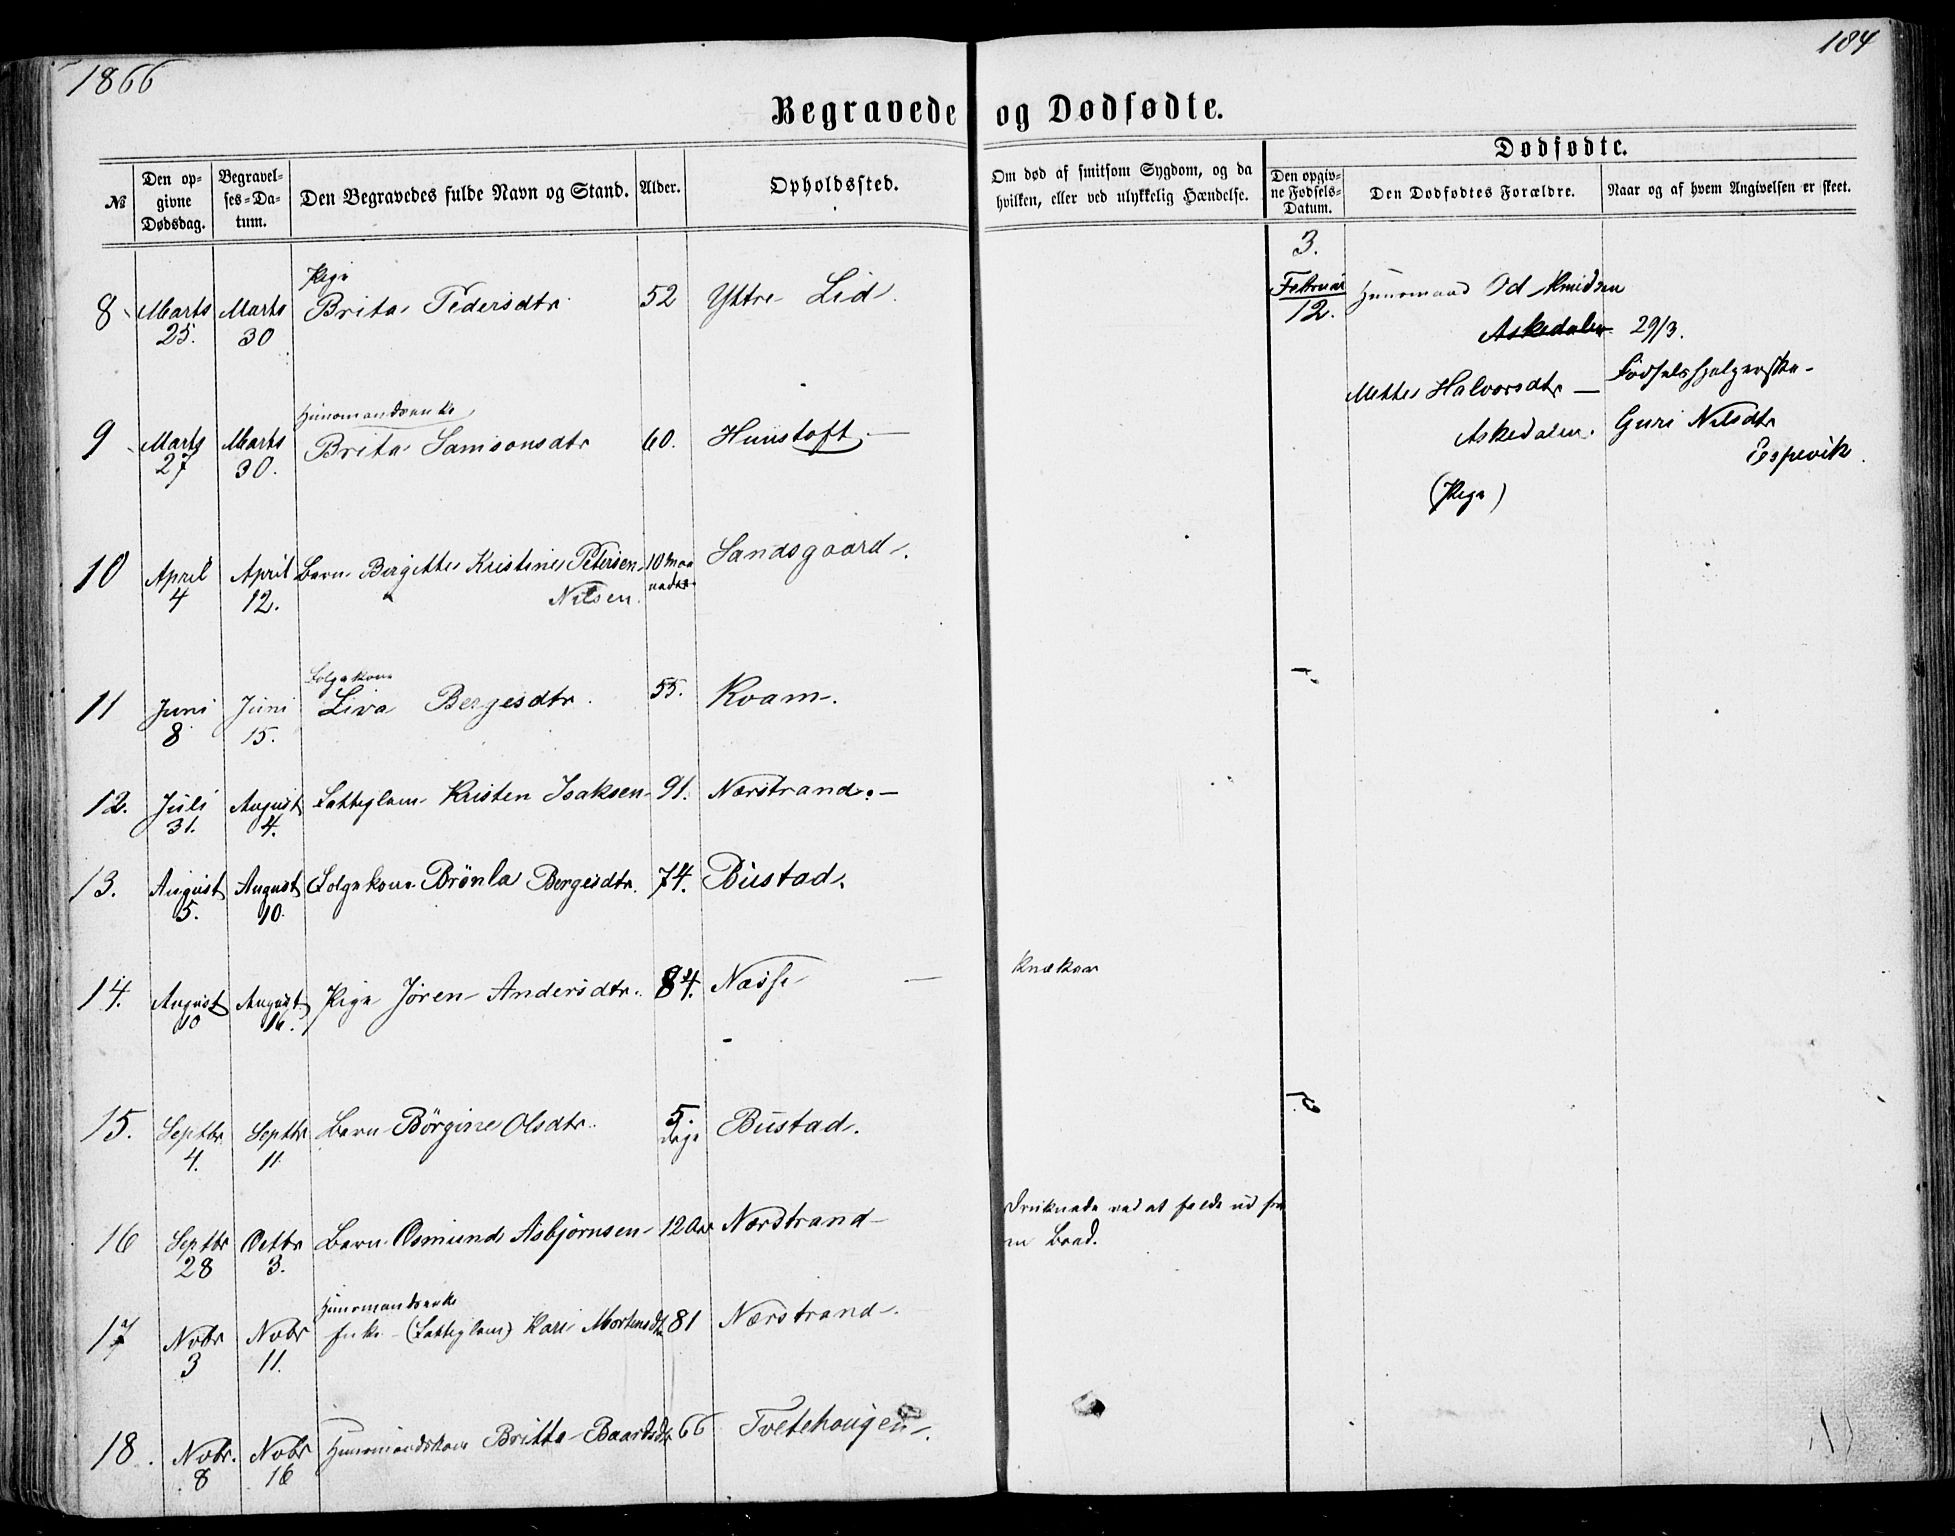 1866
184
Begravede og Dødfødte.
№
Den opgivne Dødsdag.
Begravelses-Datum.
Den Begravedes fulde Navn og Stand.
Alder.
Opholdssted.
Om død af smitsom Sygdom, og da hvilken, eller ved ulykkelig Hændelse.
Dødfødte.
Den opgivne Fødsels-Datum.
Den Dødfødtes Forældre.
Naar og af hvem Angivelsen er skeet.
Pige
8 Marts 25. Marts 30 Brita Pedersdtr 52 Yttre Lid.
3.
Februar 12.
Huusmand Od Knudsen
Askedalen 29/3.
Mette Halvorsdtr — Fødselshjelperske
Askedalen. Guri Nilsdtr
Espevik.
(Pige)
Huusmandsenke
9 Marts 27 Marts 30. Brita Samsonsdtr 60. Huustoft.
10 April 4 April 12. Barn Birgitte Kristine Petersen 10 Maaneder Sandsgaard.
Nilsen.
Folgekone
11 Juni 8. Juni 15. Liva Bergesdtr. 55. Kvam.
12. Juli 31. August 4. Fattiglem Kristen Isaksen 91. Nærstrand.
13. August 5. August 10. Folgekone Brönla Bergesdtr. 74. Bustad.
14. August 10 August 16. Pige Jören Andersdtr. 84. Næsse
15. Septbr. 4. Septbr 11 Barn Börgine Olsdtr. 5. Dage Bustad.
16 Septbr 28 Octbr 3. Barn Osmund Asbjørnsen 12 Aar Nærstrand
Druknede ved at falde ud fra
en Baad.
Huusmandsenke
17 Nobr 3 Nobr 11. Enke (Fattiglem) Kari Mortensdtr 81 Nærstrand.
18. Nobr. 8 Nobr 16 Huusmandskone Britta Baardsdtr 66 Tvetehougen.